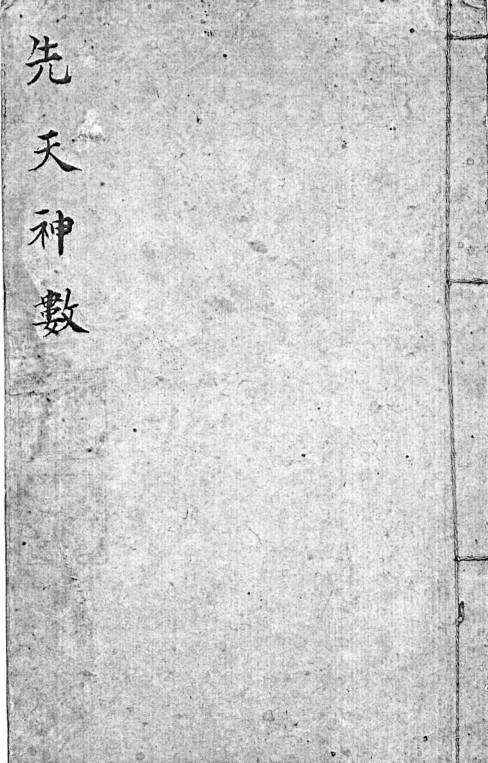 先天神數